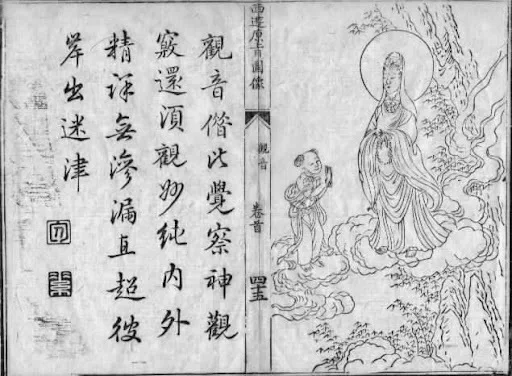 西遊原旨圖像
觀音
卷首
四十五
觀音此覺察神觀
竅還須觀妙純內外
精詳無滲漏直超彼
岸出迷津